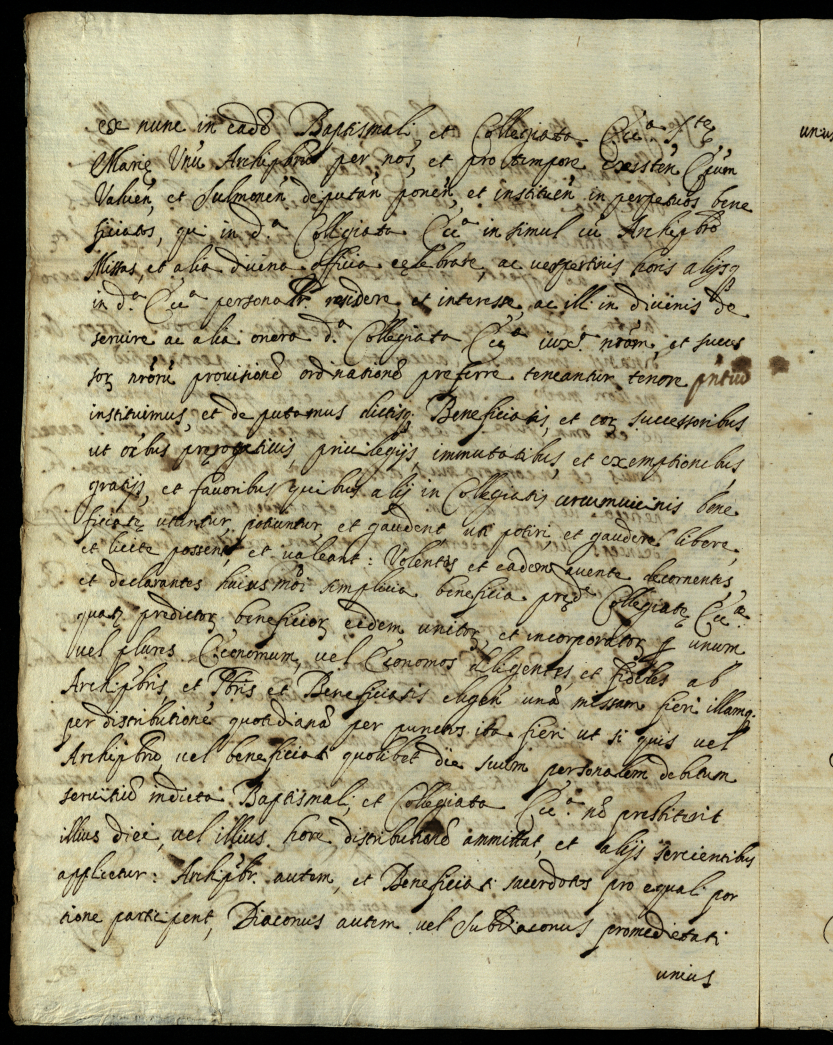 ex nunc in eadẽ Baptismali, et Collegiata Eccª Stę
Marię Unũ Archipbrũ per nos, et pro tempore existeñ Epum
Valueñ, et Sulmoneñ deputañ poneñ, et instituẽn in perpetuos bene
ficiatos, qui in dª Collegiata Eccª in simul cũ Archipbrõ
Missas, et alia divina officia cęlebrare, ac vespertinis horis alijsq
in dª Eccª personalr residere et interesse, ac illi in divinis de
servire ac alia onera dª Collegiata Eccª iuxª nrõm, et succes
soꝝ nrõrũ provisionẽ ordinationẽ preferre teneantur tenore pñtiũ
instituimus, et deputamus dictisq Beneficiatis, et eoꝝ successoribus
ut oĩbus pręrogativis, privilegijs, immunitatibus, et exemptionibus,
gratijs, et favoribus quibus alij in Collegiatis circumvicinis bene
ficiatę utuntur, potiuntur, et gaudent uti potiri et gaudere libere,
et licite possent, et valeant: Volentes et eadem avente decernentes,
et declarantes huiusmõi simplicia beneficia pręd Collegiatę Eccæ
quaꝝ predictoꝝ beneficioꝝ eidem unitoꝝ, et incorporatoꝝ ꝑ unum
vel plures Economum, vel Economos diligentes, et fideles ab
Archipbris, et Pbris et Beneficiatis eligeñ unã messam fieri illamq
per distributionẽ quotidianã per punctos ita fieri ut si quis vel
Archipbrõ, vel beneficiat quolibet die suum personalem debitum
servitiũ in dicta Baptismali, et Collegiata Eccª nõ prestiterit
illius diei, vel illius hore distributionẽ ammittat, et alijs servientibus
applicetur: Archipbr autem, et Beneficiati sacerdotes pro equali por
tione participent, Diaconus autem vel Subdiaconus pro medietati
unius